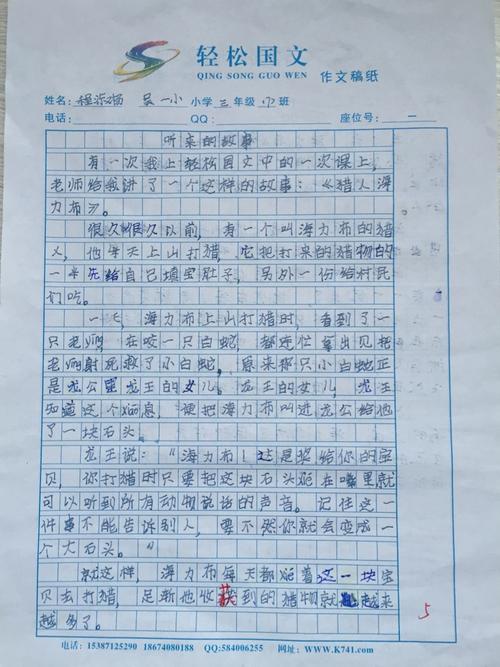 轻松国文
QING SONG GUO WEN
作文稿纸
姓名: 吴一小 小学 三 年级 班
电话: QQ: 座位号: 一
听来的故事
有一次我上轻松国文中的一次课上,
老师给我讲了一个这样的故事:《猎人海
力布》。
很久很久以前,有一个叫海力布的猎
人,他每天上山打猎,它把打来的猎物的
一半先给自己填宝肚子,另外一份给村民
们吃。
一天,海力布上山打猎时,看到了一
只老师,在咬一只白蛇,海力布拿出贝把
老师射死救了小白蛇。原来那只小白蛇正
是龙公龙王的女儿。龙王的女儿,龙王
知道这个消息,便把海力布叫进龙公给他
了一块石头。
龙王说:“海力布!这是奖给你的宝
贝,你打猎时只要把这块石头含在嘴里就
可以听到所有动物说话的声音。记住这一
件事不能告诉别人,要不然你就会变成一
个大石头。”
就这样,海力布每天都含着这一块宝
贝去打猎,足渐他收获到的猎物就越来
越多了。
5
电话:15387125290 18674080188 QQ:584006255 网址:WWW.K741.COM